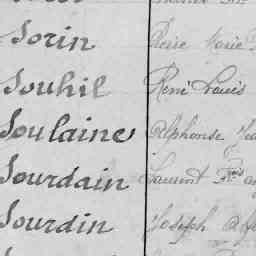 Sorin Pierre Marie
Souhil René Louis
Soulaine Alphonse
Sourdain Laurent Fçs
Sourdin Joseph